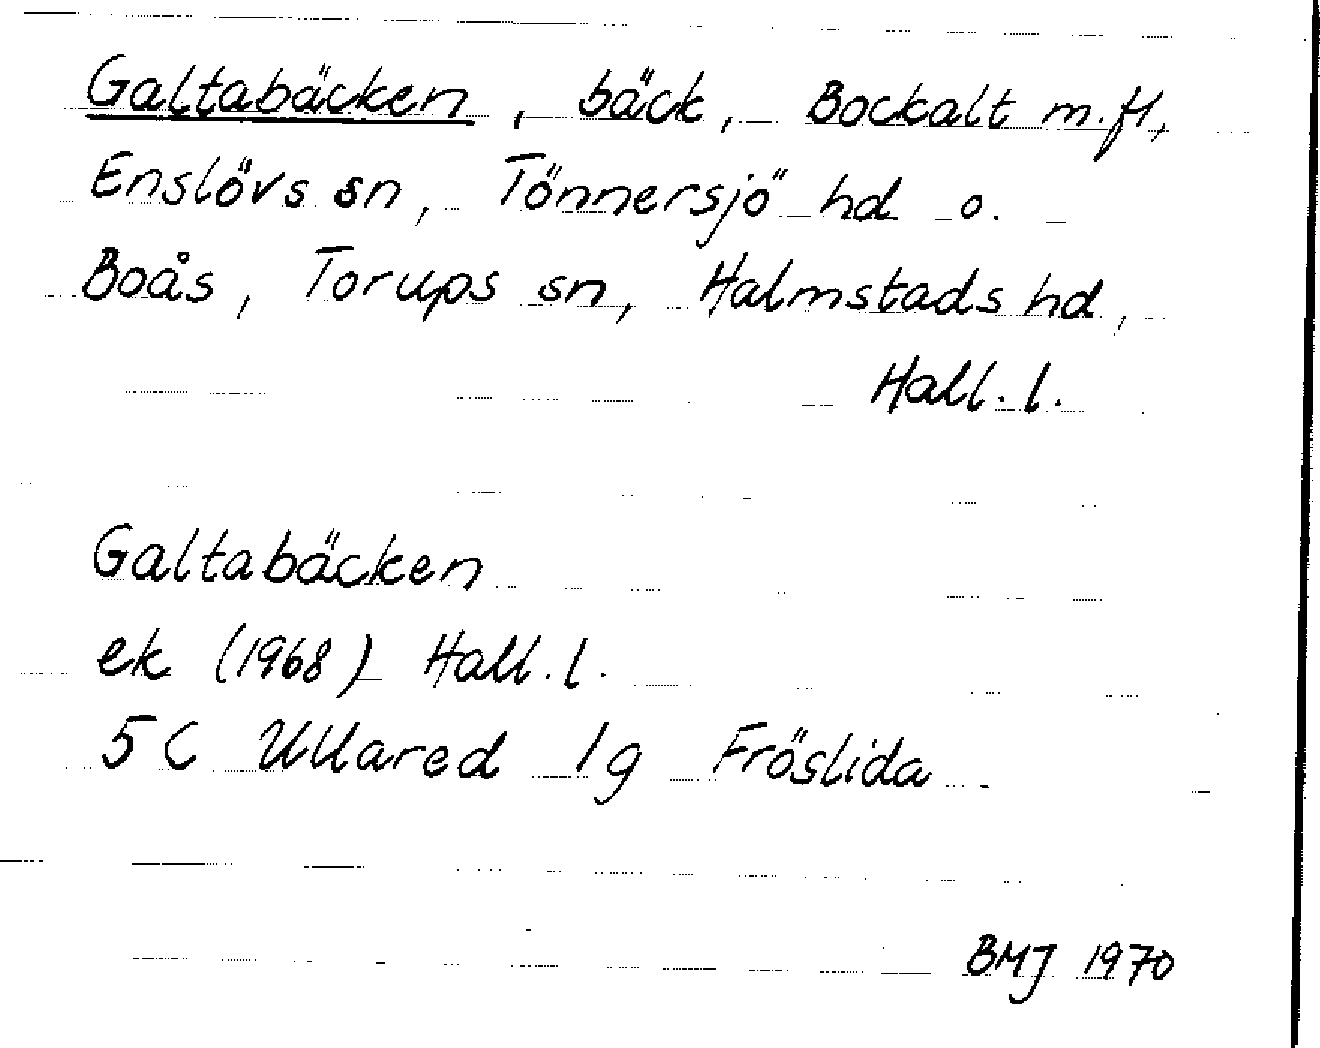 Galtabäcken, bäck, Bockalt m.fl.,
Enslövs sn, Tönnersjö hd o.
Boås, Torups sn, Halmstads hd,
Hall.l.
Galtabäcken
ek (1968) Hall.l.
5C Ullared 1g Fröslida
BMJ 1970